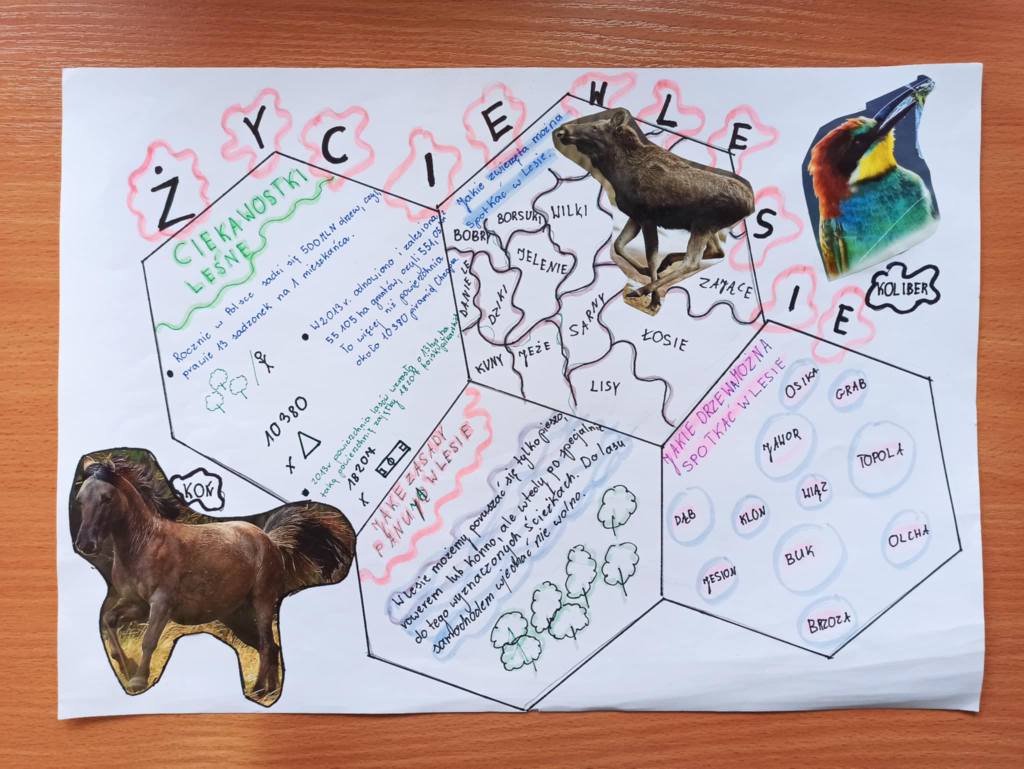 ŻYCIE W LESIE
CIEKAWOSTKI
LEŚNE
Rocznie w Polsce sadzi się 500 MLN drzew, czyli
prawie 13 sadzonek na 1 mieszkańca.
W 2013 r. odnowiono i zalesiono
55 105 ha gruntów, czyli 551,05
To więcej niż powierzchnia
około 10 380 piramid Cheopsa
10 380
x
2013r. powierzchnia lasów wzrosła o 13 tys ha
taką powierzchnię zajęłoby 18 207 boisk piłkarskich
18 207
x
Jakie zwierzęta można
spotkać w lesie.
BOBRY
BORSUKI
WILKI
DANIELE
DZIKI
JELENIE
SARNY
ZAJĄCE
KUNY
JEŻE
ŁOSIE
LISY
KOLIBER
KOŃ
JAKIE ZASADY
PANUJĄ W LESIE
W lesie możemy poruszać się tylko pieszo,
rowerem lub konno, ale wtedy po specjalnie
do tego wyznaczonych ścieżkach. Do lasu
samochodem wjechać nie wolno.
JAKIE DRZEWA MOŻNA
SPOTKAĆ W LESIE
OSIKA
GRAB
JAWOR
TOPOLA
WIĄZ
DĄB
KLON
BUK
OLCHA
JESION
BRZOZA